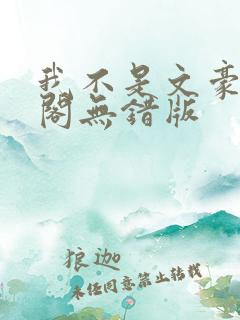 我不是文豪
閣無錯版
狼迦
未经同意禁止转载